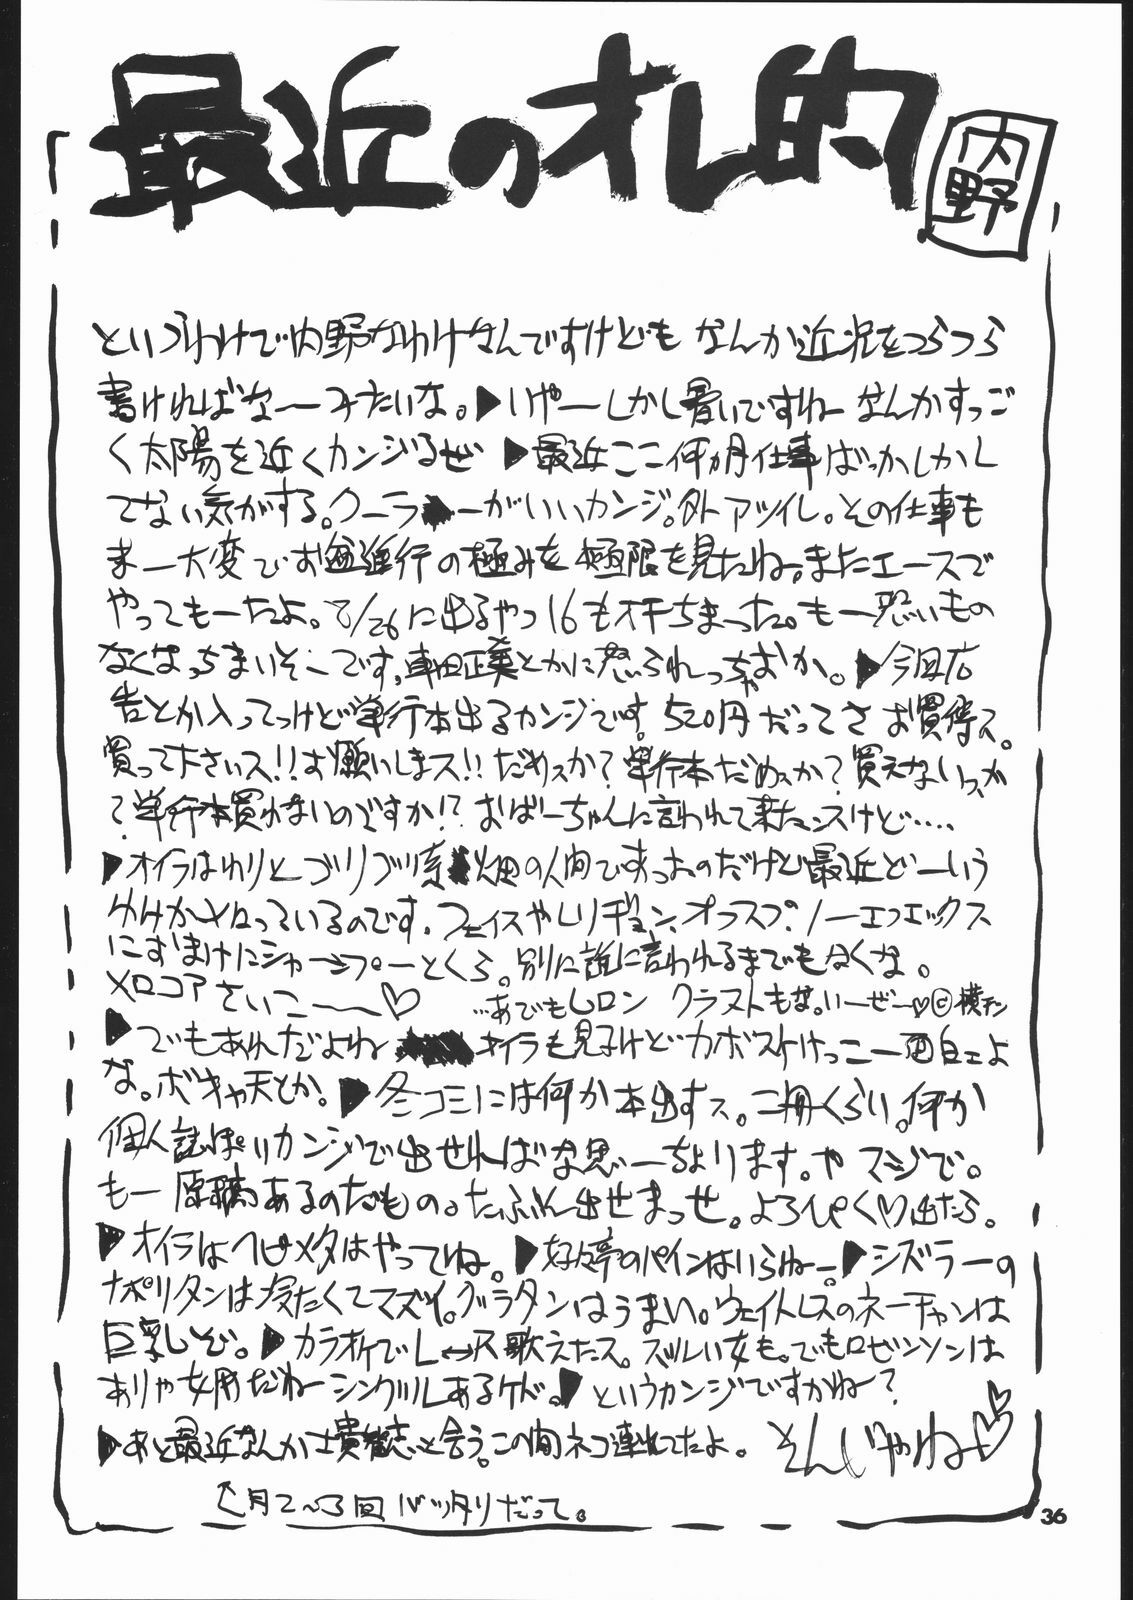 最近のオレ的
内野
というわけで内野なわけなんですけども なんか近況をつらつら
書ければな〜みたいな。▶いやーしかし暑いですねー なんかすっご
く太陽を近くカンジるぜ ▶最近ここ何ヵ月仕事ばっかしかし
てない気がする。クーラーがいいカンジ。外アツイし。その仕事も
まー大変でお進行の極みを極限を見たね。またエースで
やってもーたよ。8/26に出るやつ16もオチちまった。もー恐いもの
なくなっちまいそーです。車田正美とかに怒られっちゃおか。▶今回広
告とか入ってっけど単行本出るカンジです。520円だってさ お買得ス。
買って下さいス!!お願いしまス!!だめスか?単行本だめスか?買えないスか
?単行本買わないのですか!?おばーちゃんに言われて来たンスけど‥‥
▶オイラはわりとゴリゴリ系畑の人間ですったのだけど最近どーいう
わけかメロっているのです。フェイスやレリギョン、オフスプ、ノーエフエックス
におまけにシャーンプーとくら。別に誰に言われるまでもなくな。
メロコアさいこ〜〜♡ …あでもレロン クラストもな。いーぜー♡©横チン
▶でもあれだよね オイラも見るけどカボスけっこー面白えよ
な。ボキャ天とか。▶冬コミには何か本出すス。二冊くらい。何か
個人誌ぽいカンジで出せればな思ーちょります。や マジで。
もー原稿あるのだもの。たぶん出せまっせ。よろぴく♡出たら。
▶オイラはヘビメタはやってね。▶好々亭のパインはいらねー。▶シズラーの
ナポリタンは冷たくてマズイ。グラタンはうまい。ウェイトレスのネーチャンは
巨乳しぞ。▶カラオケでL↔R歌えたス。ズルい女も。でもロビンソンは
ありゃ女用だねーシングルあるケド。▶というカンジですかねー?
▶あと最近なんか士貴智志と会う。この間ネコ連れてたよ。 そんじゃね〜♡
↑月2〜3回バッタリだって。
36